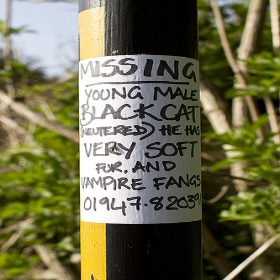 MISSING
YOUNG MALE
BLACK CAT
(NEUTERED) HE HAS
VERY SOFT
FUR. AND
VAMPIRE FANGS
01947.820391